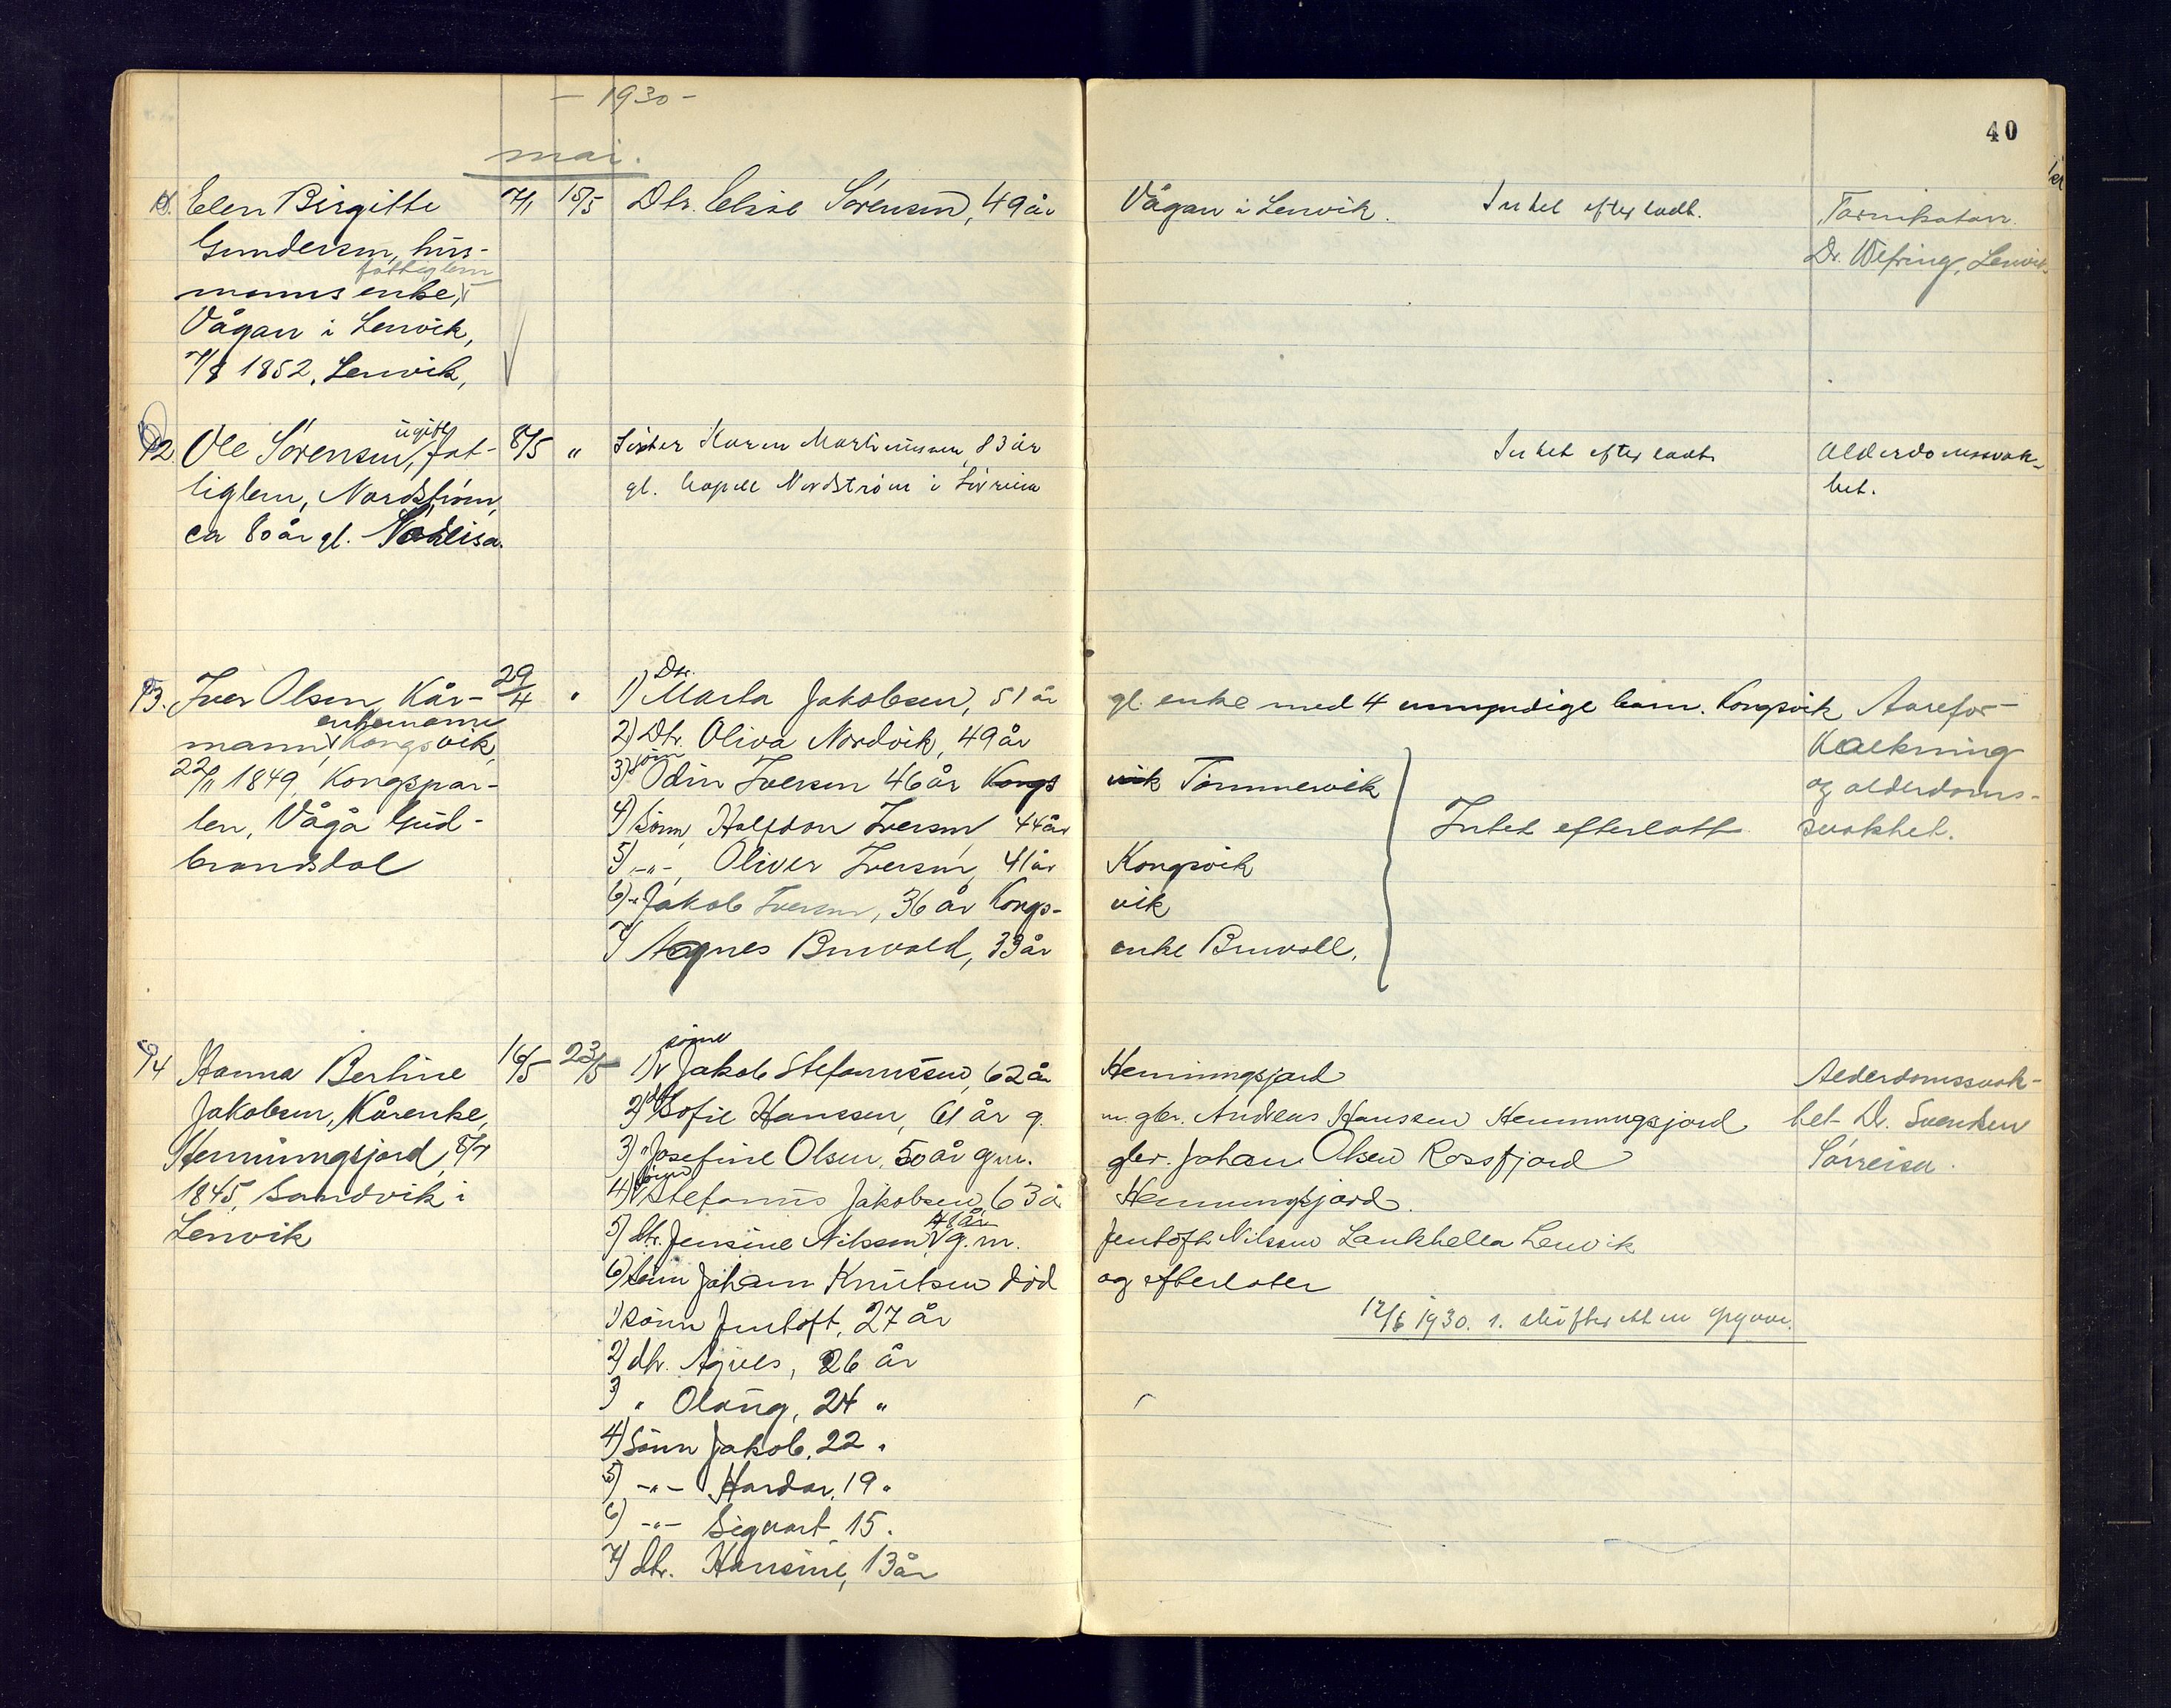 - 1930 -
40
mai.
Elen Birgitte 7/1 15/5 Dtr. Elise Sørensen, 49 år Vågan i Lenvik. Intet efterladt. Tarmkatarr.
Gundersen, hus- Dr. Wefring, Lenvik
fattiglem
manns enke,
Vågan i Lenvik,
7/8 1852, Lenvik,
ugift
12. Ole Sørensen, fat- 8/5 " Søster Karen Martinussen, 83 år Intet efterladt Alderdomssvak-
tiglem, Nordstrøm, gl. Kapell Nordstrøm i Sørreisa het.
ca 80 år gl. Sørreisa.
Dtr.
13. Iver Olsen, Kår- 29/4 " 1) Marta Jakobsen, 51 år gl. enke med 4 umyndige barn. Kongsvik Aarefor-
enkemann
mann, Kongsvik, 2) Dtr. Oliva Nordvik, 49 år kalkning
22/11 1849, Kongspar- 3) sønn Odin Iversen 46 år Kongsvik Tømmervik og alderdoms-
ten, Vågå Gud- 4) Sønn, Halfdan Iversen, 44 år Intet efterlatt svakhet.
brandsdal 5) -"-, Oliver Iversen, 41 år Kongsvik
6) -"- Jakob Iversen, 36 år Kongs- vik
7) Agnes Bruvold, 33 år enke Bruvoll.
sønn
14 Hanna Bertine 16/5 23/5 1) Jakob Stefanussen, 62 år Hemmingsjord Alderdomssvak-
Jakobsen, Kårenke, 2) dtr Sofie Hanssen, 61 år g. m. gbr. Andreas Hanssen Hemmingsjord het Dr. Svendsen
Hemmingsjord, 8/7 3) " Josefine Olsen, 50 år g.m. gbr. Johan Olsen Rossfjord Sørreisa.
1845, Sandvik i 4) sønn Stefanus Jakobsen, 63 å Hemmingsjord.
48 år
Lenvik 5) dtr. Jensine Nilssen g.m. Jentoft Nilssen Laukhella Lenvik
6) sønn Johan Knutsen død og efterlater
1) sønn Jentoft, 27 år 12/6 1930. 1. skifterett en opgave.
2) dtr. Agnes, 26 år
3) " Olaug, 24 "
4) Sønn Jakob, 22 "
5) -"- Hardar, 19 "
6) -"- Sigvart, 15.
7) dtr. Hansine, 13 år